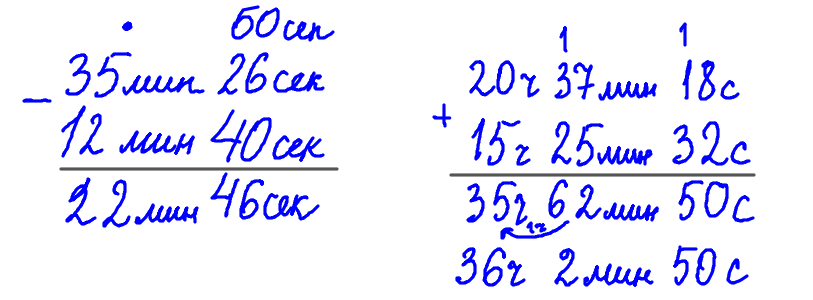 60сек
35мин 26сек
−
12 мин 40сек
22мин 46сек
1 1
20ч 37мин 18с
+
15ч 25мин 32с
35ч 62мин 50с
1ч
36ч 2мин 50с